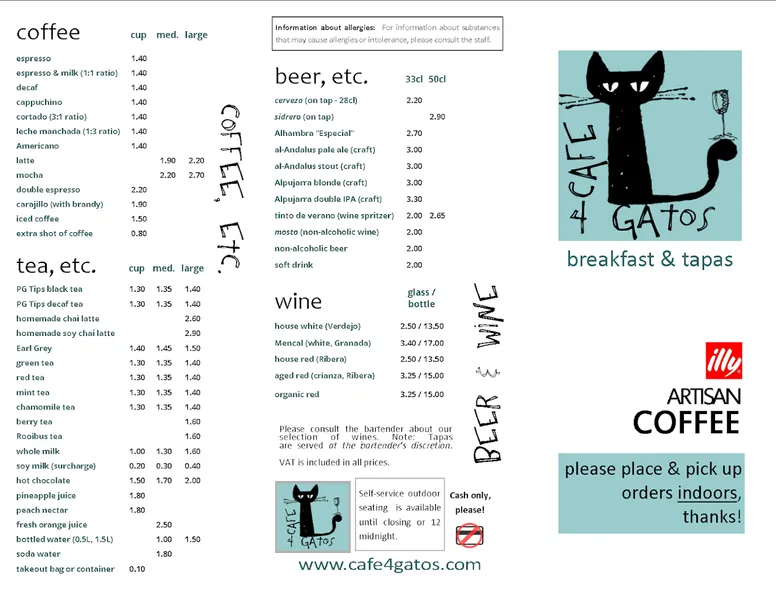 coffee cup med. large
espresso 1.40
espresso & milk (1:1 ratio) 1.40
decaf 1.40
cappuchino 1.40
cortado (3:1 ratio) 1.40
leche manchada (1:3 ratio) 1.40
Americano 1.40
latte 1.90 2.20
mocha 2.20 2.70
double espresso 2.20
carajillo (with brandy) 1.90
iced coffee 1.50
extra shot of coffee 0.80
COFFEE, ETC.
tea, etc. cup med. large
PG Tips black tea 1.30 1.35 1.40
PG Tips decaf tea 1.30 1.35 1.40
homemade chai latte 2.60
homemade soy chai latte 2.90
Earl Grey 1.40 1.45 1.50
green tea 1.30 1.35 1.40
red tea 1.30 1.35 1.40
mint tea 1.30 1.35 1.40
chamomile tea 1.30 1.35 1.40
berry tea 1.60
Rooibus tea 1.60
whole milk 1.00 1.30 1.60
soy milk (surcharge) 0.20 0.30 0.40
hot chocolate 1.50 1.70 2.00
pineapple juice 1.80
peach nectar 1.80
fresh orange juice 2.50
bottled water (0.5L, 1.5L) 1.00 1.50
soda water 1.80
takeout bag or container 0.10
Information about allergies: For information about substances
that may cause allergies or intolerance, please consult the staff.
beer, etc. 33cl 50cl
cerveza (on tap - 28cl) 2.20
sidrero (on tap) 2.90
Alhambra "Especial" 2.70
al-Andalus pale ale (craft) 3.00
al-Andalus stout (craft) 3.00
Alpujarra blonde (craft) 3.00
Alpujarra double IPA (craft) 3.30
tinto de verano (wine spritzer) 2.00 2.65
mosto (non-alcoholic wine) 2.00
non-alcoholic beer 2.00
soft drink 2.00
wine glass /
bottle
house white (Verdejo) 2.50 / 13.50
Mencal (white, Granada) 3.40 / 17.00
house red (Ribera) 2.50 / 13.50
aged red (crianza, Ribera) 3.25 / 15.00
organic red 3.25 / 15.00
BEER & WINE
Please consult the bartender about our
selection of wines. Note: Tapas
are served at the bartender's discretion.
VAT is included in all prices.
4 CAFE
GATOS
Self-service outdoor
seating is available
until closing or 12
midnight.
Cash only,
please!
www.cafe4gatos.com
4 CAFE
GATOS
breakfast & tapas
illy
ARTISAN
COFFEE
please place & pick up
orders indoors,
thanks!